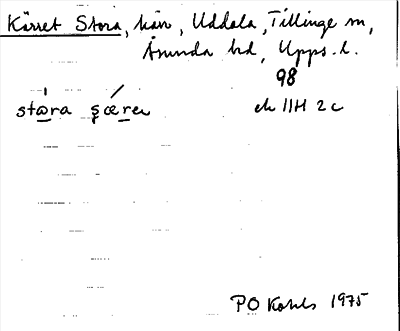 Kärret Stora, kärr, Uddala, Tillinge sn,
Åsunda hd, Upps. l.
98
stωra çæreꞇ
ek 11H 2c
PO Kohls 1975